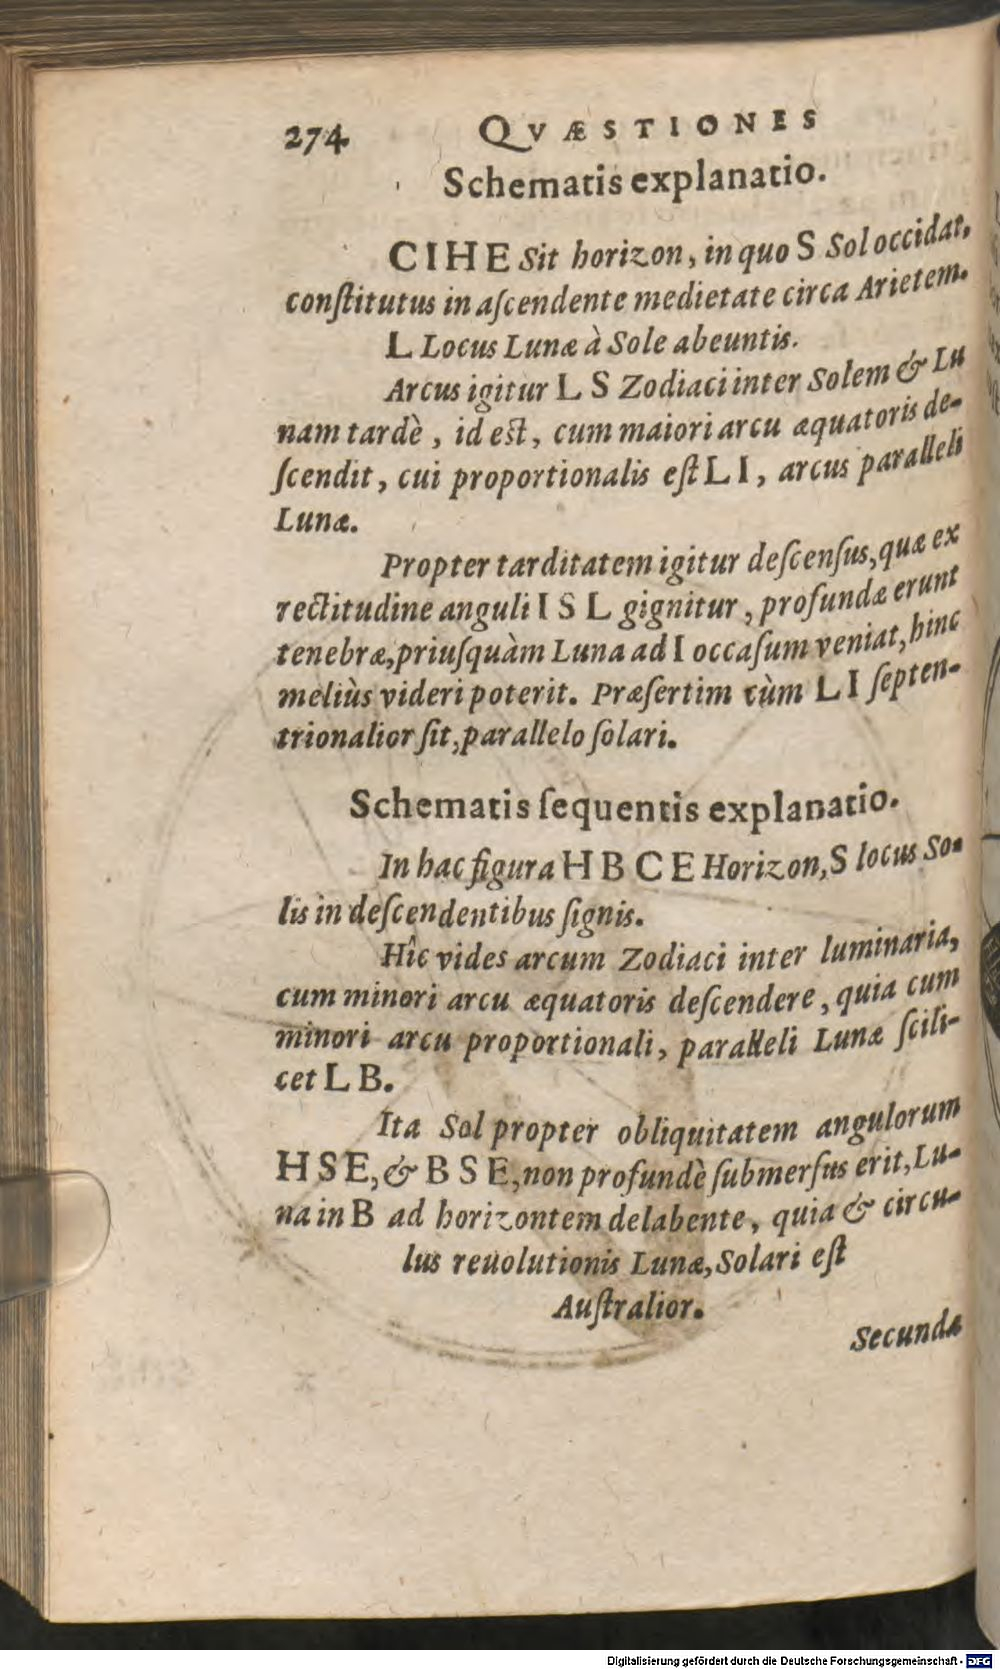 274 QVÆSTIONES
Schematis explanatio.
CIHE Sit horizon, in quo S Sol occidat,
conſtitutus in aſcendente medietate circa Arietem.
L Locus Lunæ à Sole abeuntis.
Arcus igitur L S Zodiaci inter Solem & Lu
nam tardè, id eſt, cum maiori arcu æquatoris de-
ſcendit, cui proportionalis eſt L I, arcus paralleli
Lunæ.
Propter tarditatem igitur deſcenſus, quæ ex
rectitudine anguli I S L gignitur, profundæ erunt
tenebræ, priuſquàm Luna ad I occaſum veniat, hinc
meliùs videri poterit. Præſertim cùm L I ſepten-
trionalior ſit, parallelo ſolari.
Schematis ſequentis explanatio.
In hac figura H B C E Horizon, S locus So-
lis in deſcendentibus ſignis.
Hîc vides arcum Zodiaci inter luminaria,
cum minori arcu æquatoris deſcendere, quia cum
minori arcu proportionali, paralleli Lunæ ſcili-
cet L B.
Ita Sol propter obliquitatem angulorum
H S E, & B S E, non profundè ſubmerſus erit, Lu-
na in B ad horizontem delabente, quia & circu-
lus reuolutionis Lunæ, Solari eſt
Auſtralior.
Secundæ
Digitalisierung gefördert durch die Deutsche Forschungsgemeinschaft - DFG